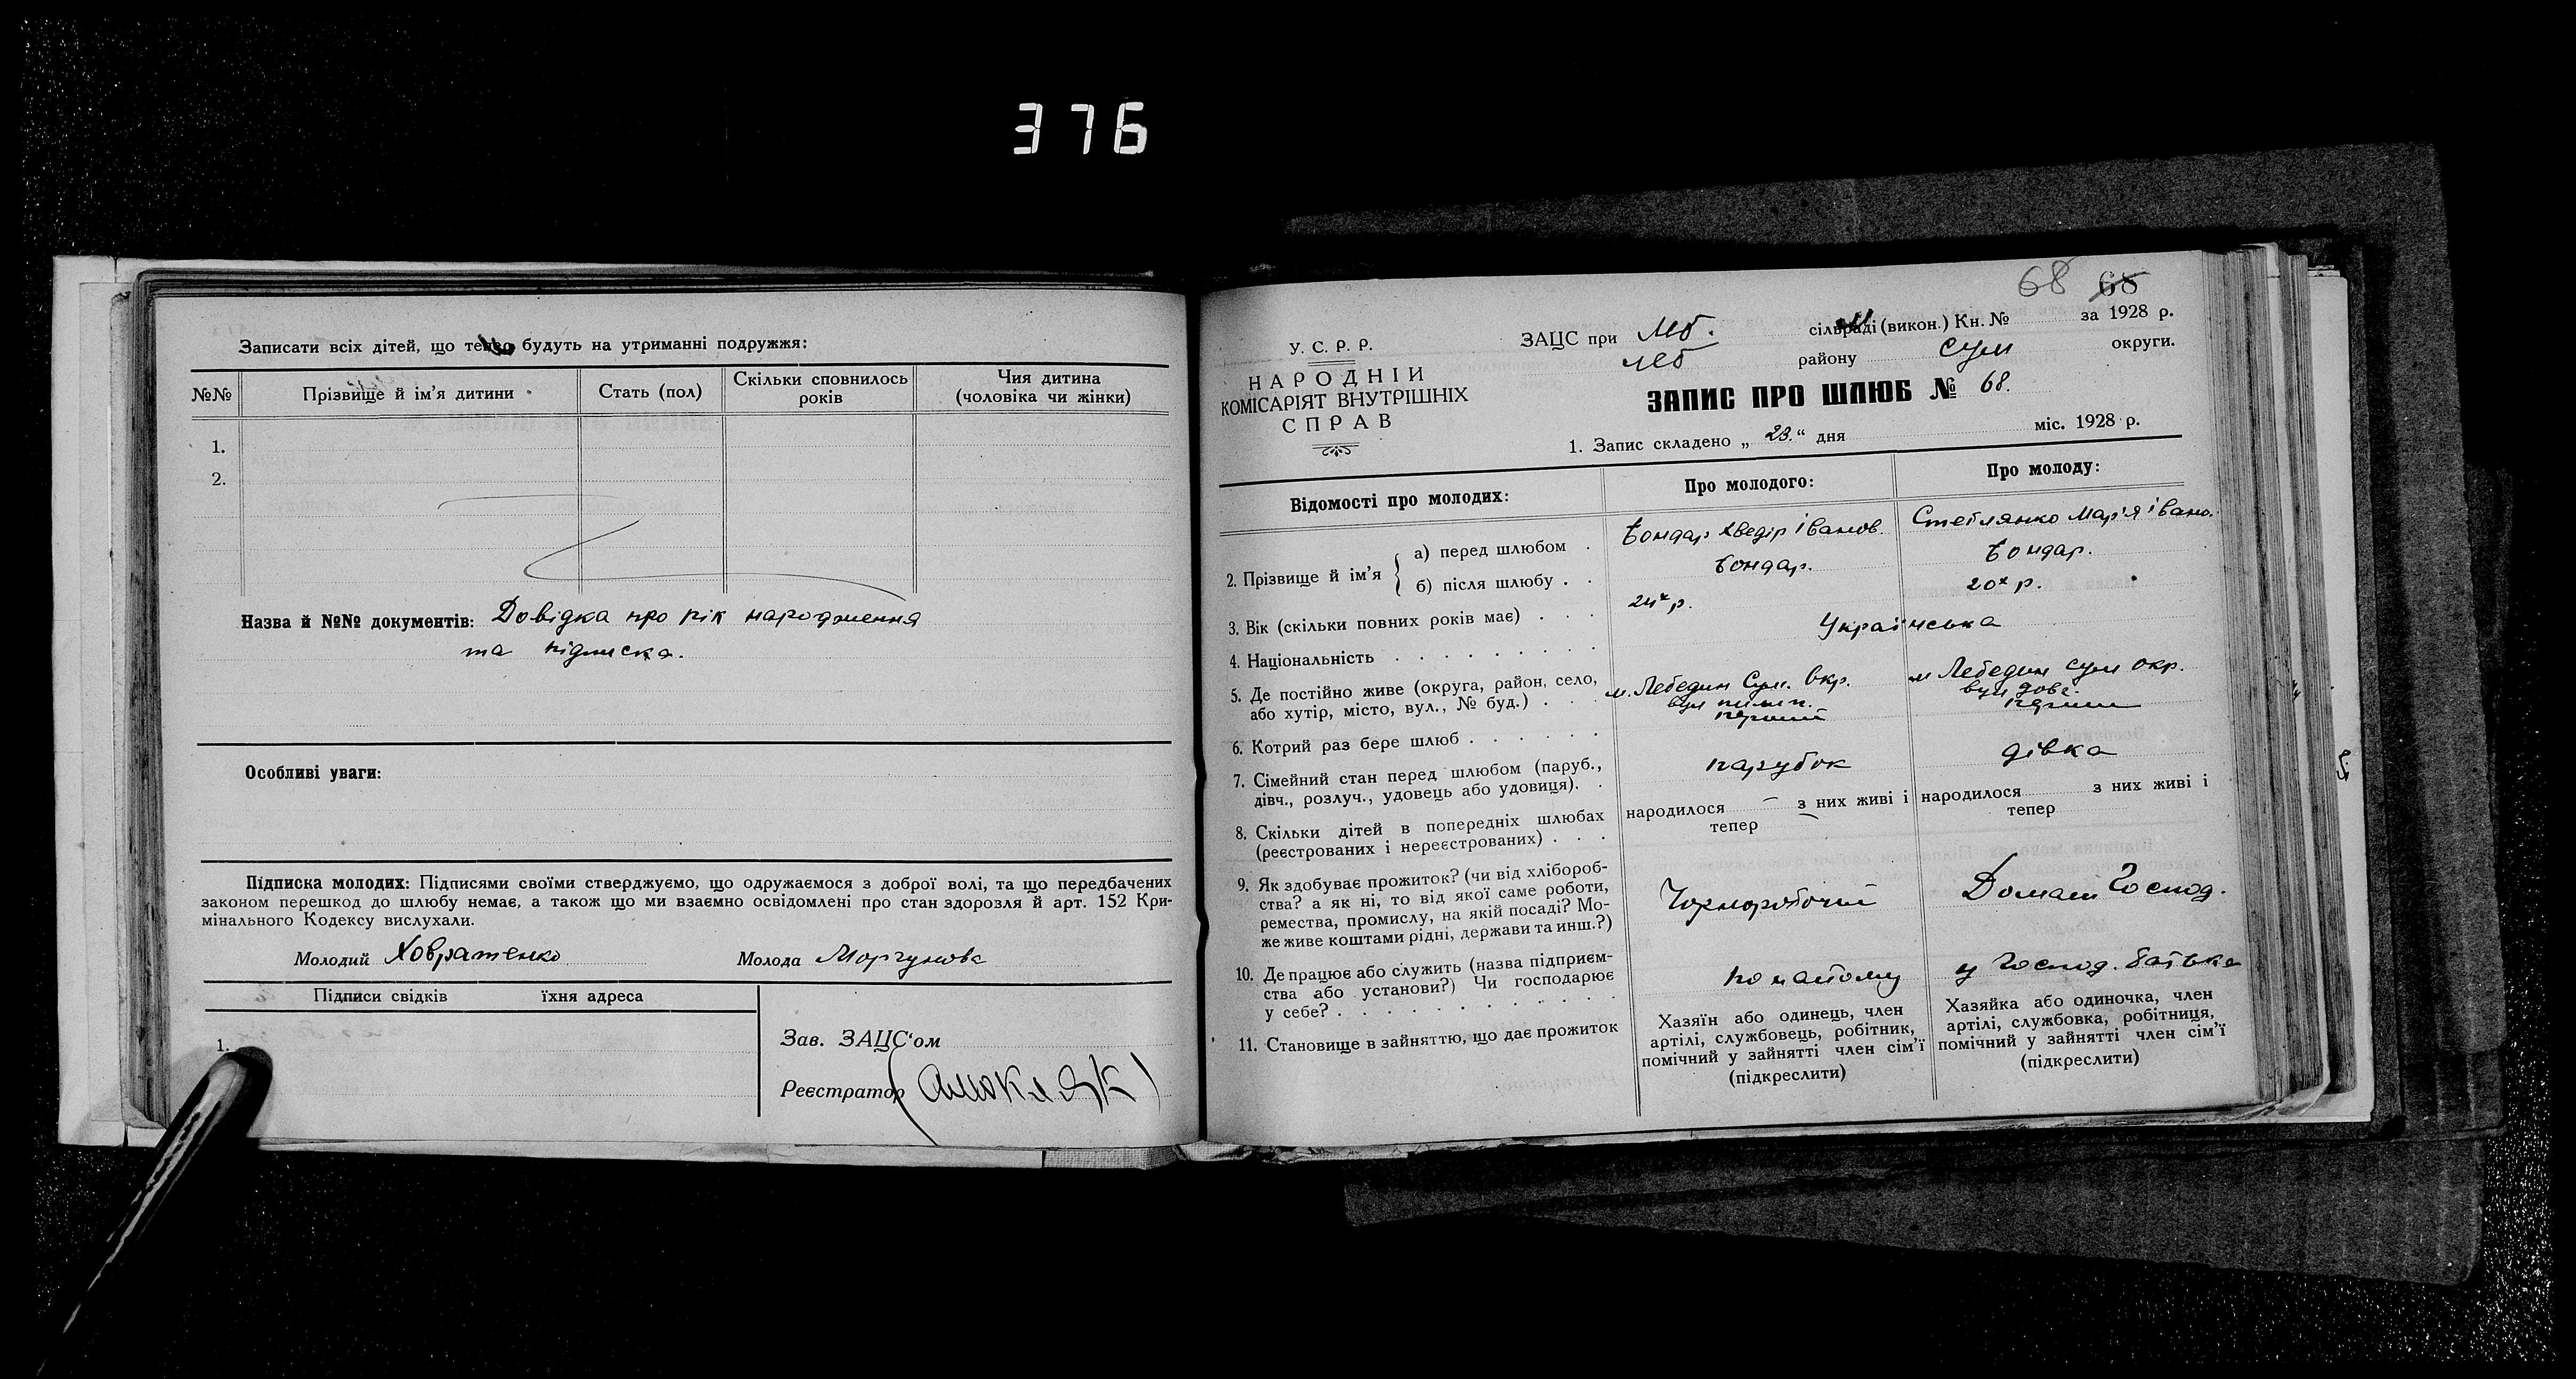 376
Записати всіх дітей, що тепер будуть на утриманні подружжя:
№№ Прізвище й ім'я дитини Стать (пол) Скільки сповнилось років Чия дитина (чоловіка чи жінки)
1.
2.
Назва й №№ документів: Довідка про рік народження
та підписка.
Особливі уваги:
Підписка молодих: Підписями своїми стверджуємо, що одружаємося з доброї волі, та що передбачених
законом перешкод до шлюбу немає, а також що ми взаємно освідомлені про стан здоровля й арт. 152 Кри-
мінального Кодексу вислухали.
Молодий Ховратенко Молода Моргунова
Підписи свідків їхня адреса
1.
Зав. ЗАЦС'ом
Реєстратор
68 68
У. С. Р. Р.
НАРОДНІЙ
КОМІСАРІЯТ ВНУТРІШНІХ
СПРАВ
ЗАЦС при Леб. сільраді (викон.) Кн. № за 1928 р.
Леб району Сум округи.
ЗАПИС ПРО ШЛЮБ № 68.
1. Запис складено „ 23. “ дня міс. 1928 р.
Відомості про молодих: Про молодого: Про молоду:
2. Прізвище й ім'я
а) перед шлюбом . Бондар Хведір Іванов. Марія Івано.
б) після шлюбу . . Бондар. Бондар.
3. Вік (скільки повних років має) . . . 24х р. 20х р.
4. Національність . . . . . . . . . Українська
5. Де постійно живе (округа, район, село,
або хутір, місто, вул., № буд.) . . . м. Лебедин Сум. Окр. вул м Лебедин Сум окр. вул Довг.
6. Котрий раз бере шлюб . . . . . . перший перший
7. Сімейний стан перед шлюбом (паруб.,
дівч., розлуч., удовець або удовиця). . парубок дівка
8. Скільки дітей в попередніх шлюбах
(реєстрованих і нереєстрованих) . . .
народилося – з них живі і
тепер –
народилося з них живі і
тепер
9. Як здобуває прожиток? (чи від хлібороб-
ства? а як ні, то від якої саме роботи,
ремества, промислу, на якій посаді? Мо-
же живе коштами рідні, держави та инш.?)
Чорноробочий
Домаш Господ.
10. Де працює або служить (назва підприєм-
ства або установи?) Чи господарює
у себе? . . . . . . . . . .
по найому
у Господ. батька
11. Становище в зайняттю, що дає прожиток
Хазяїн або одинець, член
артілі, службовець, робітник,
помічний у зайнятті член сім'ї
(підкреслити)
Хазяйка або одиночка, член
артілі, службовка, робітниця,
помічний у зайнятті член сім'ї
(підкреслити)